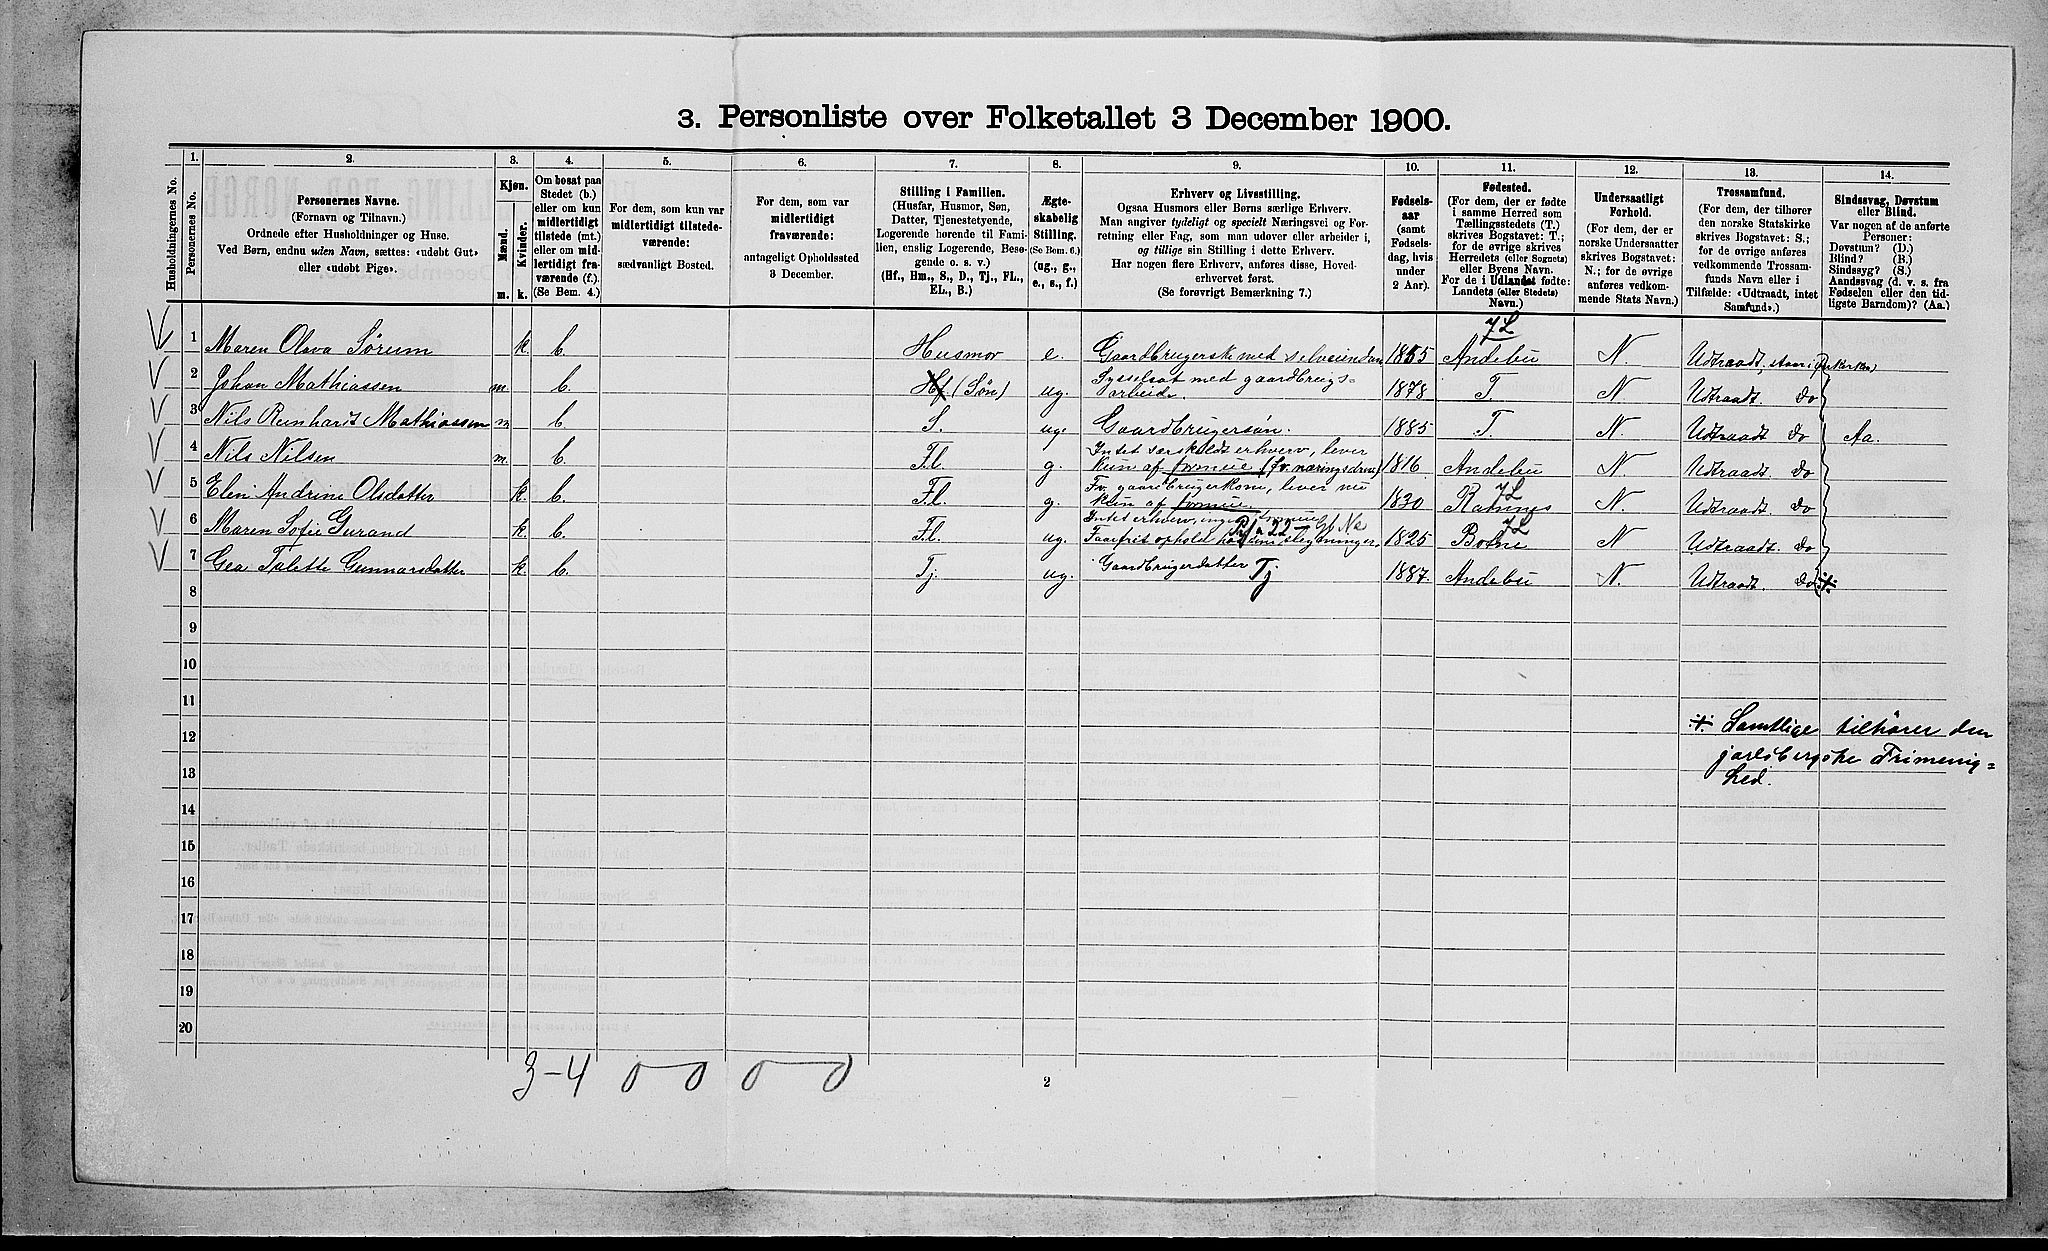 3. Personliste over Folketallet 3 December 1900.
Husholdningernes No.
1.
Personernes No.
2.
Personernes Navne.
(Fornavn og Tilnavn.)
Ordnede efter Husholdninger og Huse.
Ved Børn, endnu uden Navn, sættes: «udøbt Gut»
eller «udøbt Pige».
3.
Kjøn.
Mænd.
Kvinder.
m.
k.
4.
Om bosat paa
Stedet (b.)
eller om kun
midlertidigt
tilstede (mt.)
eller om mid-
lertidigt fra-
værende (f.).
(Se Bem. 4.)
5.
For dem, som kun var
midlertidigt tilstede-
værende:
sædvanligt Bosted.
6.
For dem, som var
midlertidigt
fraværende:
antageligt Opholdssted
3 December.
7.
Stilling i Familien.
(Husfar, Husmor, Søn,
Datter, Tjenestetyende,
Logerende hørende til Fami-
lien, enslig Logerende, Besø-
gende o. s. v.)
(Hf., Hm., S., D., Tj., FL.,
EL., B.)
8.
Ægte-
skabelig
Stilling.
(Se Bem. 6.)
(ug., g.,
e., s., f.)
9.
Erhverv og Livsstilling.
Ogsaa Husmors eller Børns særlige Erhverv.
Man angiver tydeligt og specielt Næringsvei og For-
retning eller Fag, som man udøver eller arbeider i,
og tillige sin Stilling i dette Erhverv.
Har nogen flere Erhverv, anføres disse, Hoved-
erhvervet først.
(Se forøvrigt Bemærkning 7.)
10.
Fødsels-
aar
(samt
Fødsels-
dag, hvis
under
2 Aar).
11.
Fødested.
(For dem, der er fødte
i samme Herred som
Tællingsstedets (T.)
skrives Bogstavet: T.;
for de øvrige skrives
Herredets (eller Sognets)
eller Byens Navn.
For de i Udlandet fødte:
Landets (eller Stedets)
Navn.)
12.
Undersaatligt
Forhold.
(For dem, der er
norske Undersaatter
skrives Bogstavet:
N.; for de øvrige
anføres vedkom-
mende Stats Navn.)
13.
Trossamfund.
(For dem, der tilhører
den norske Statskirke
skrives Bogstavet: S.;
for de øvrige anføres
vedkommende Trossam-
funds Navn eller i
Tilfælde: «Udtraadt, intet
Samfund».)
14.
Sindssvag, Døvstum
eller Blind.
Var nogen af de anførte
Personer:
Døvstum? (D.)
Blind? (B.)
Sindssyg? (S.)
Aandssvag (d. v. s. fra
Fødselen eller den tid-
ligste Barndom)? (Aa.)
1 Maren Olava Sørum k. b. Husmor e. Gaardbrugerske med selveiendom 1855 Andebu JL N. Udtraadt
2 Johan Mathiassen m. b. Hf (Søn) ug. Sysselsat med gaardbrugs=
arbeide. 1878 T. N Udtraadt. do
3 Nils Reinhardt Mathiassen m b. S. ug. Gaardbrugersøn. 1885 T. N. Udtraadt do Aa.
4 Nils Nilsen m. b. F.l. g. Intet særskildt erhverv, lever
kun af formue (fv. næringsdru) 1816 Andebu N Udtraadt. do
5 Elen Andrine Olsdatter k. b. F.l. g. Fv. gaardbrugerkone, lever nu
kun af formue. 1830 Ramnes JL N. Udtraadt do
6 Maren Sofie Gurand k. b. F.l. ug. Intet erhverv, ingen formue
Faar frit ophold hos sine slegtninger. 1825 Botne JL N Udtraadt. do
7 Gea Talette Gunnarsdatter k. b. Tj. ug. Gaardbrugerdatter Tj 1887. Andebu N. Udtraadt. do
8
9
10
11
12
13
14
15
16
17
18
19
20
Samtlige tilhører den
jarlsbergske Frimenig=
hed.
3-4 0 0 0 0
2